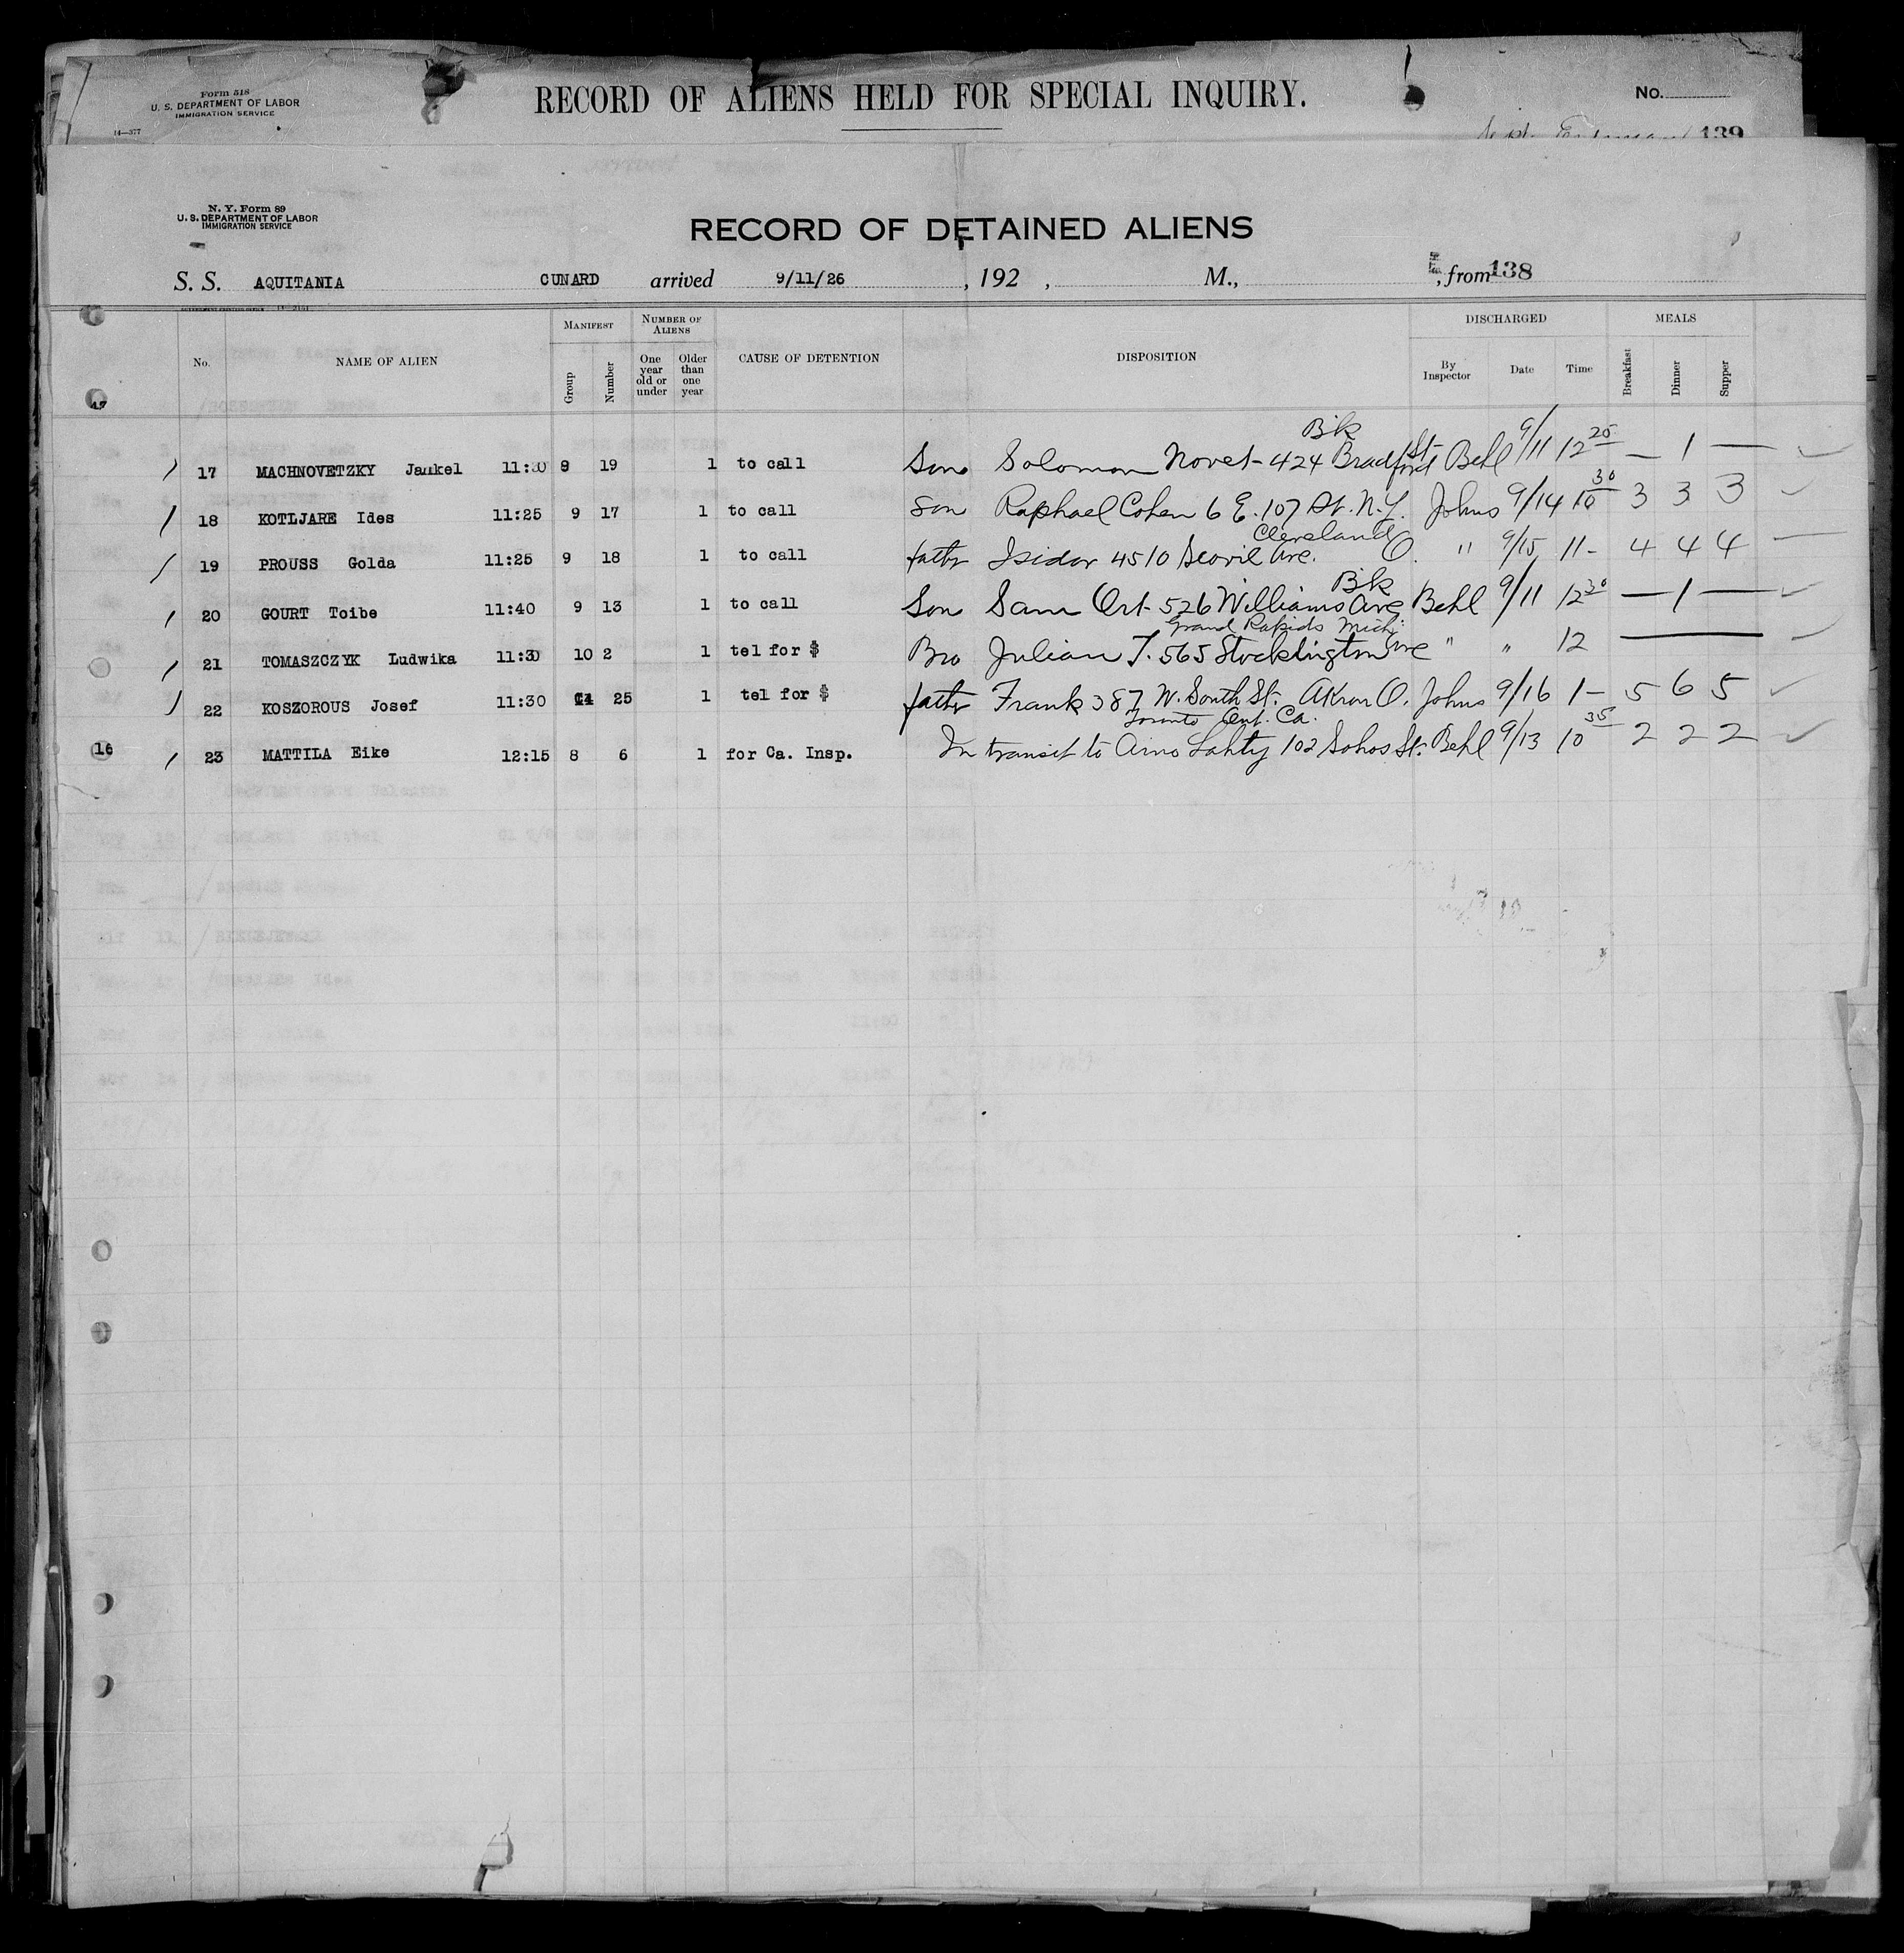 Form 518
U. S. DEPARTMENT OF LABOR
IMMIGRATION SERVICE
14—377
RECORD OF ALIENS HELD FOR SPECIAL INQUIRY.
No.
139
N. Y. Form 89
U. S. DEPARTMENT OF LABOR
IMMIGRATION SERVICE
RECORD OF DETAINED ALIENS
S. S. AQUITANIA CUNARD arrived 9/11/26, 192 , M., , from 138
No. NAME OF ALIEN MANIFEST Group Number NUMBER OF ALIENS One year old or under Older than one year CAUSE OF DETENTION DISPOSITION DISCHARGED By Inspector Date Time MEALS Breakfast Dinner Supper
Bik
/ 17 MACHNOVETZKY Jankel 11:30 8 19 1 to call Son Solomon Novet - 424 Bradford St Behl 9/11 12 25 — 1 —
/ 18 KOTLJARE Ides 11:25 9 17 1 to call Son Raphael Cohen 6 E. 107 St. N.Y. Johns 9/14 10 30 3 3 3
Cleveland
/ 19 PROUSS Golda 11:25 9 18 1 to call father Isidor 4510 Scovil Ave. O. " 9/15 11- 4 4 4
Bik
/ 20 GOURT Toibe 11:40 9 13 1 to call Son Sam Ort - 526 Williams Ave Behl 9/11 12 30 — 1 —
Grand Rapids Mich.
/ 21 TOMASZCZYK Ludwika 11:30 10 2 1 tel for $ Bro Julian T. 565 Stocklington Ave " " 12 —
/ 22 KOSZOROUS Josef 11:30 25 1 tel for $ father Frank 387 W. South St. Akron O. Johns 9/16 1- 5 6 5
Toronto Ont. Ca.
16 / 23 MATTILA Eike 12:15 8 6 1 for Ca. Insp. In transit to Aino Lahty 102 St. Behl 9/13 10 35 2 2 2